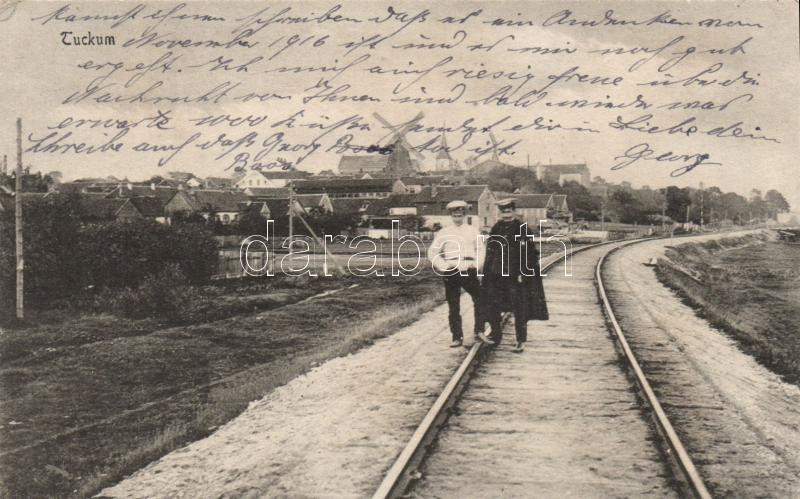 kannst ihnen schreiben daß es ein Andenken vom
Tuckum
November 1916 ist und es mir noch gut
ergeht. Ich mich auch riesig freue über die
Nachricht von Ihnen und bald wieder was
erwarte 1000 Küßen sendet dir in Liebe dein
Schreibe auch daß Georg tot ist. Georg
darabanth